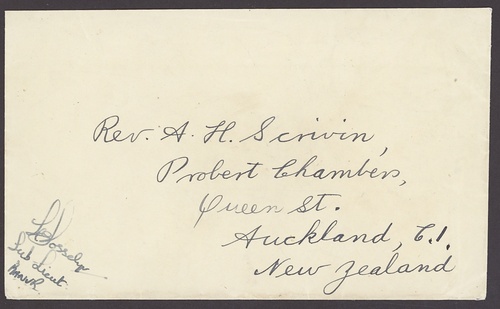 Rev. A. H. Scrivin,
Probert Chambers,
Queen St.
Auckland, C.1.
New Zealand
Sub Lieut
RNNVR